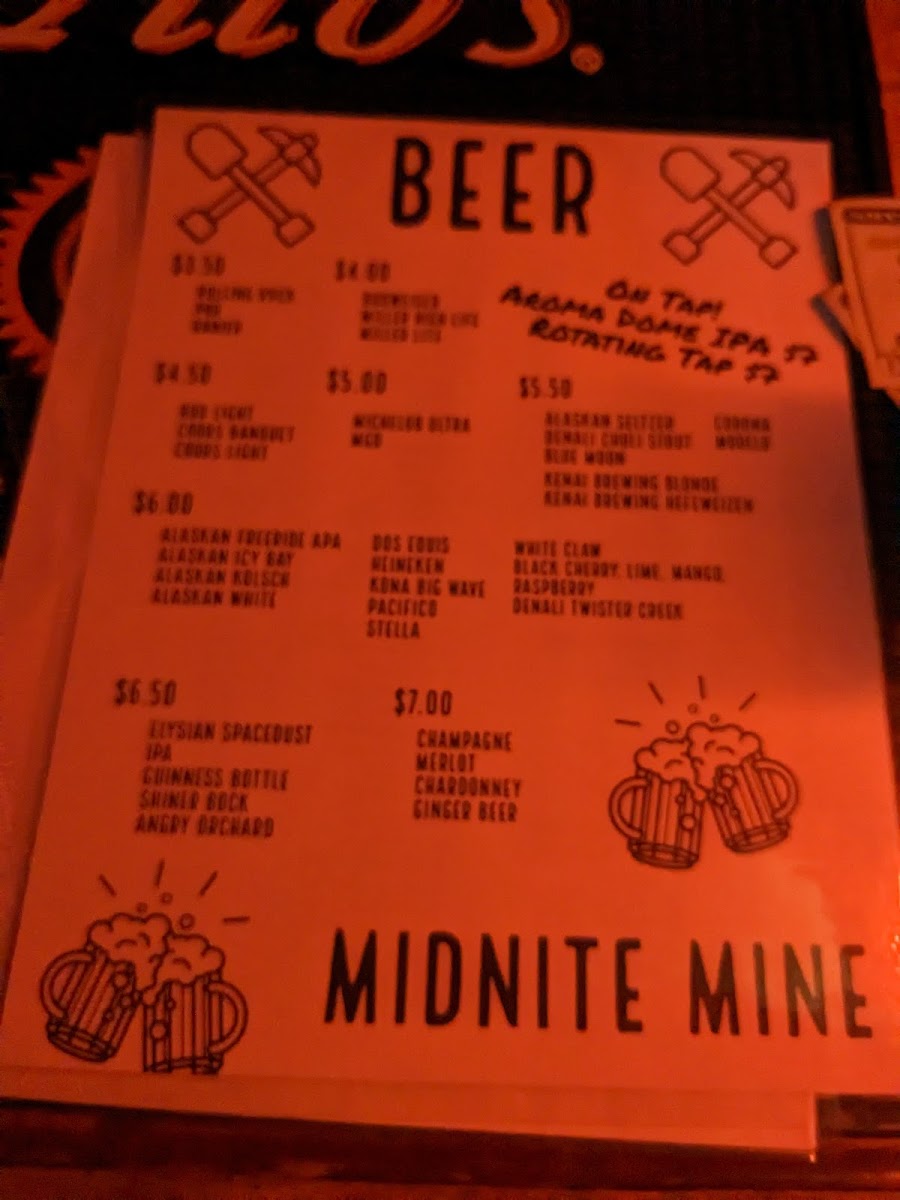 BEER
$3.50
ROLLING ROCK
PBR
RANIER
$4.00
BUDWEISER
MILLER HIGH LIFE
MILLER LITE
ON TAP!
AROMA DOME IPA $7
ROTATING TAP $7
$4.50
BUD LIGHT
COORS BANQUET
COORS LIGHT
$5.00
MICHELOB ULTRA
MGD
$5.50
ALASKAN SELTZER
DENALI CHULI STOUT
BLUE MOON
KENAI BREWING BLONDE
KENAI BREWING HEFEWEIZEN
CORONA
MODELO
$6.00
ALASKAN FREERIDE APA
ALASKAN ICY BAY
ALASKAN KOLSCH
ALASKAN WHITE
DOS EQUIS
HEINEKEN
KONA BIG WAVE
PACIFICO
STELLA
WHITE CLAW
BLACK CHERRY, LIME, MANGO,
RASPBERRY
DENALI TWISTER CREEK
$6.50
ELYSIAN SPACEDUST
IPA
GUINNESS BOTTLE
SHINER BOCK
ANGRY ORCHARD
$7.00
CHAMPAGNE
MERLOT
CHARDONNEY
GINGER BEER
MIDNITE MINE